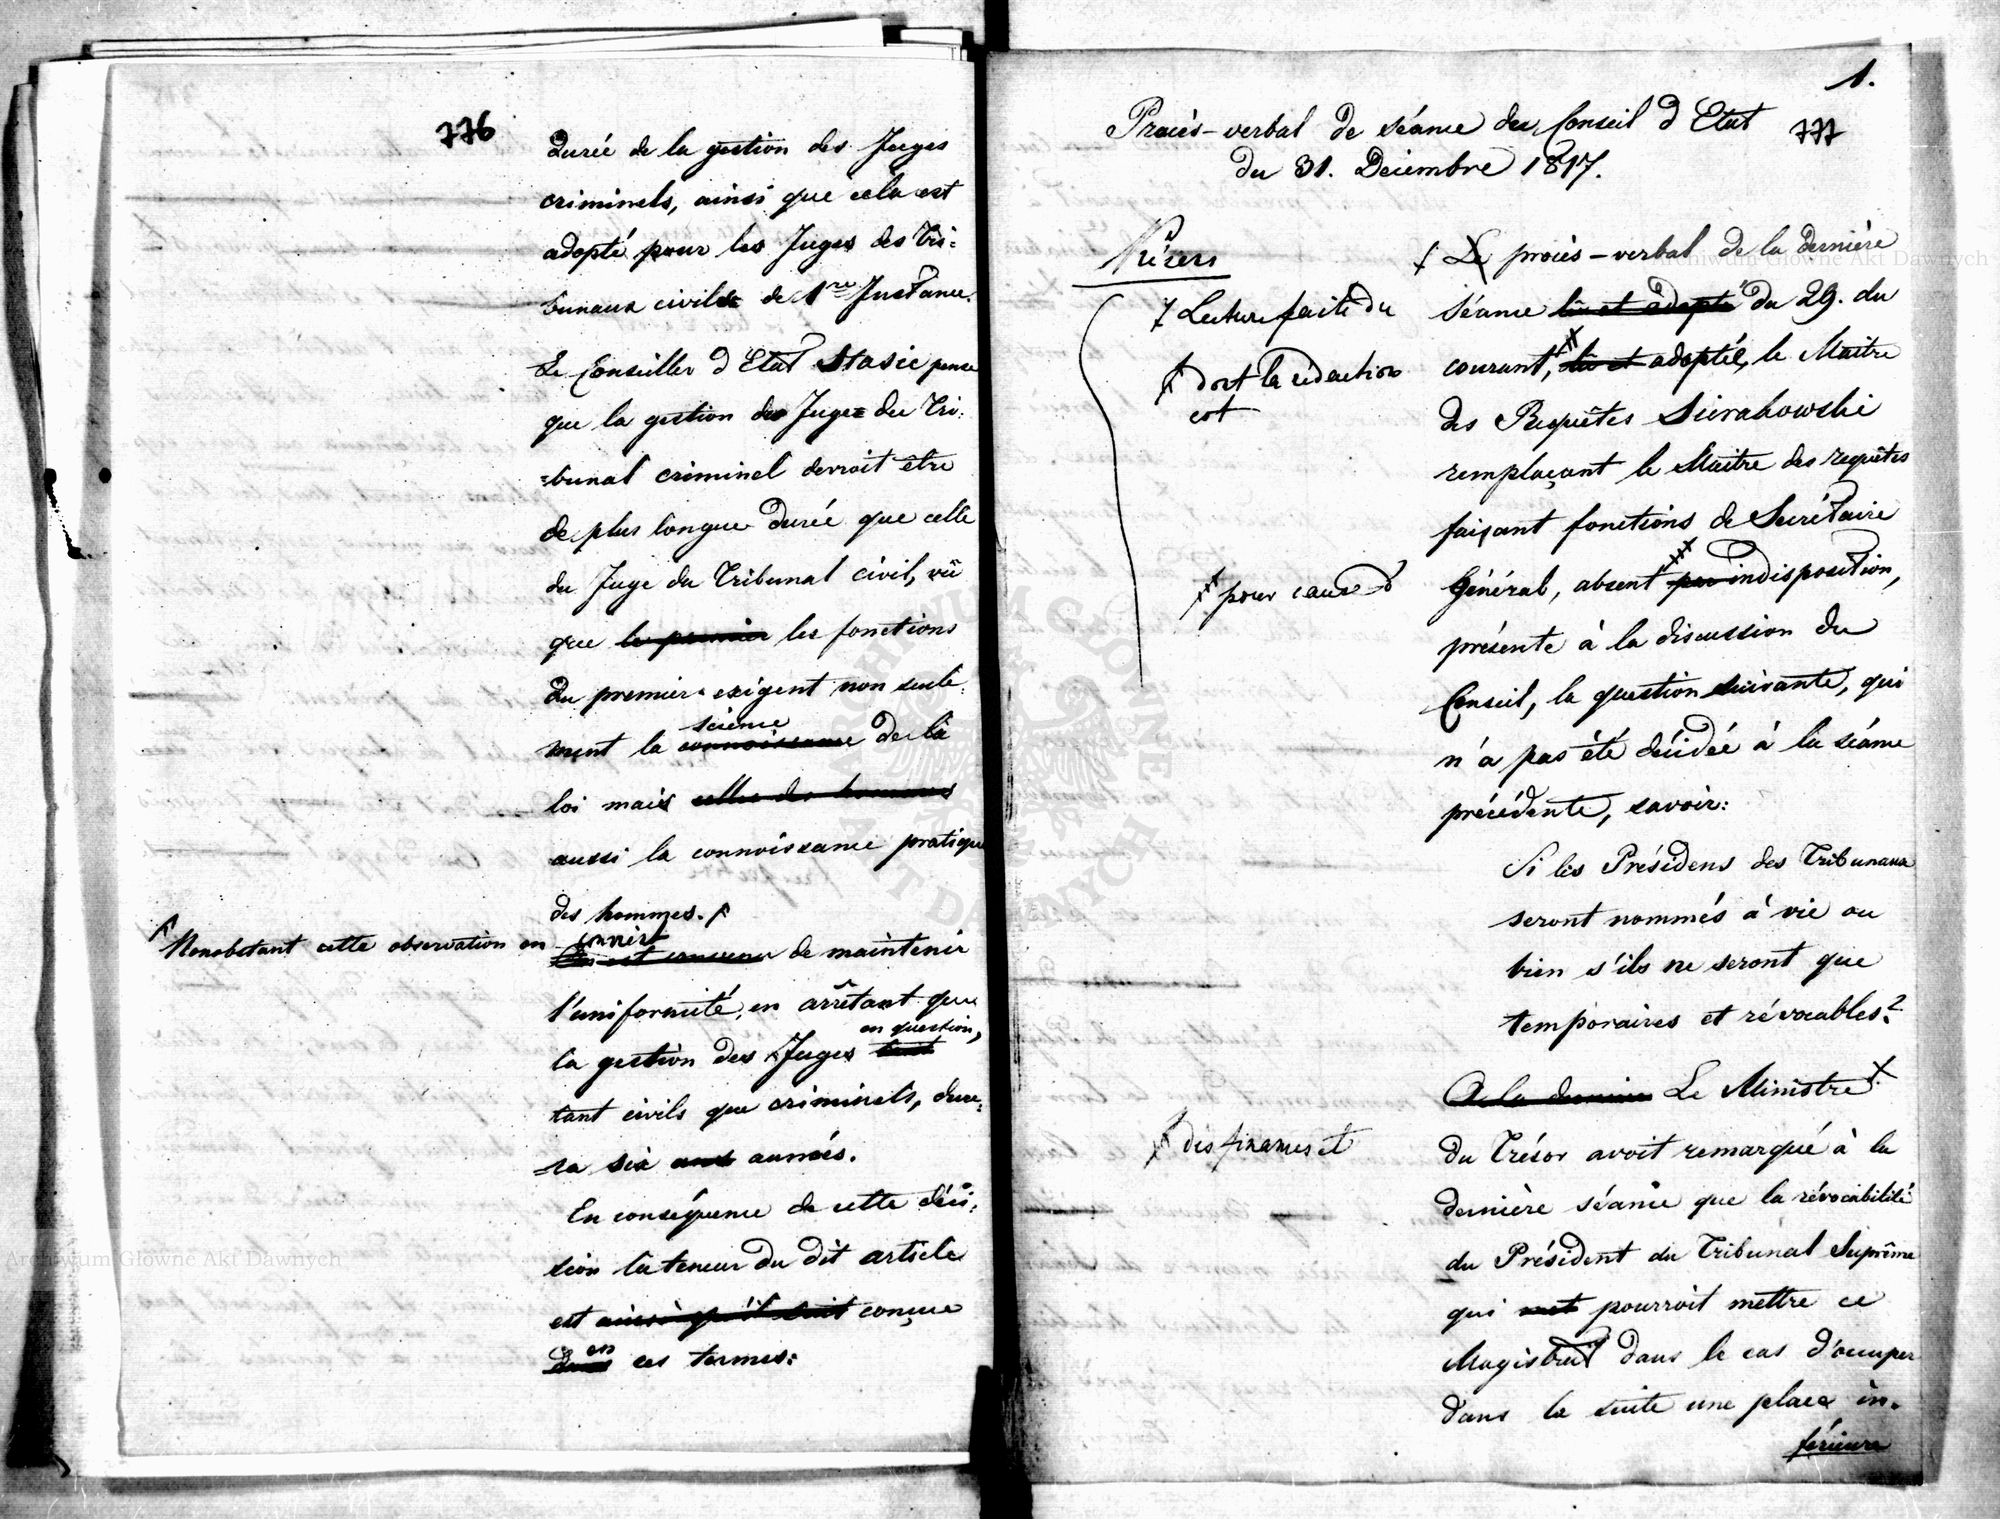 776
durée de la gestion des Juges
criminels, ainsi que cela est
adopté pour les Juges des Tri=
bunaux civils de 1re Instance.
Le Conseiller d'Etat Stasic pense
que la gestion des Juges du Tri=
=bunal criminel devroit être
de plus longue durée que celle
du Juge du Tribunal civil, vû
que le premier les fonctions
du premier exigent non seule=
science
ment la connoissance de la
loi mais celles des hommes
aussi la connoissance pratique
des hommes.
Nonobstant cette observation on convint
On est convenu de maintenir
l'uniformité, en arrêtant que
en question,
la gestion des Juges tant
tant civils que criminels, dure=
=ra six ans années.
En conséquence de cette déci=
sion la teneur du dit article
est ainsi qu'il suit conçue
en
dans ces termes:
1.
777
Procès-verbal de séance du Conseil d'Etat
du 31. Décembre 1817.
† Le procès-verbal de la dernière
† Lecture faite du
séance lû et adopté du 29. du
courant, lû et adoptée, le Maître
† dont la rédaction
est
des Requêtes Sierakowski
remplaçant le Maitre des requêtes
faisant fonctions de Secrétaire
Général, absent par indisposition,
pour cause d'
présente à la discussion du
Conseil, la question suivante, qui
n'a pas été décidée à la séance
précédente, savoir:
Si les Présidens des Tribunaux
seront nommés à vie ou
bien s'ils ne seront que
temporaires et révocables?
A la dernière Le Ministre
† des finances et
du Trésor avoit remarqué à la
dernière séance que la révocabilité
du Président du Tribunal Suprême
qui met pourroit mettre ce
Magistrat dans le cas d'occuper
dans la suite une place in=
férieure
Archiwum Główne Akt Dawnych
Archiwum Główne Akt Dawnych
ARCHIWUM GŁÓWNE AKT DAWNYCH